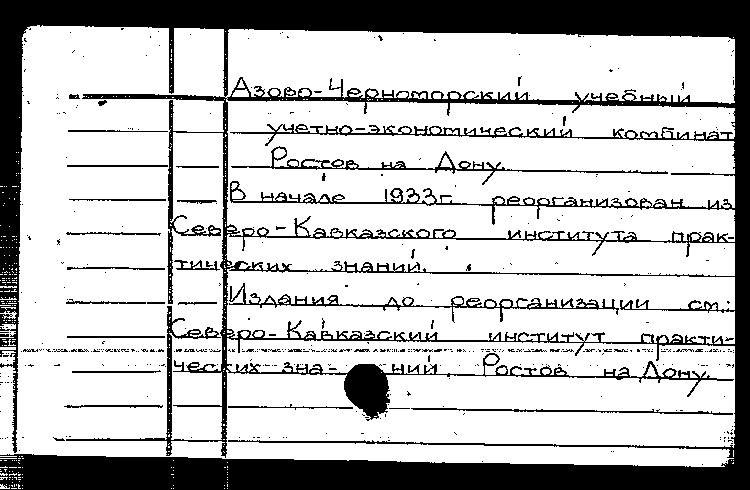 Азово-Черноморский учебный
учетно-экономический комбинат
Ростов на Дону.
В начале 1933г. реорганизован из
Северо-Кавказского института прак-
тических знаний.
Издания до реорганизации см.:
Северо-Кавказский институт практи-
ческих зна- ний. Ростов на Дону.